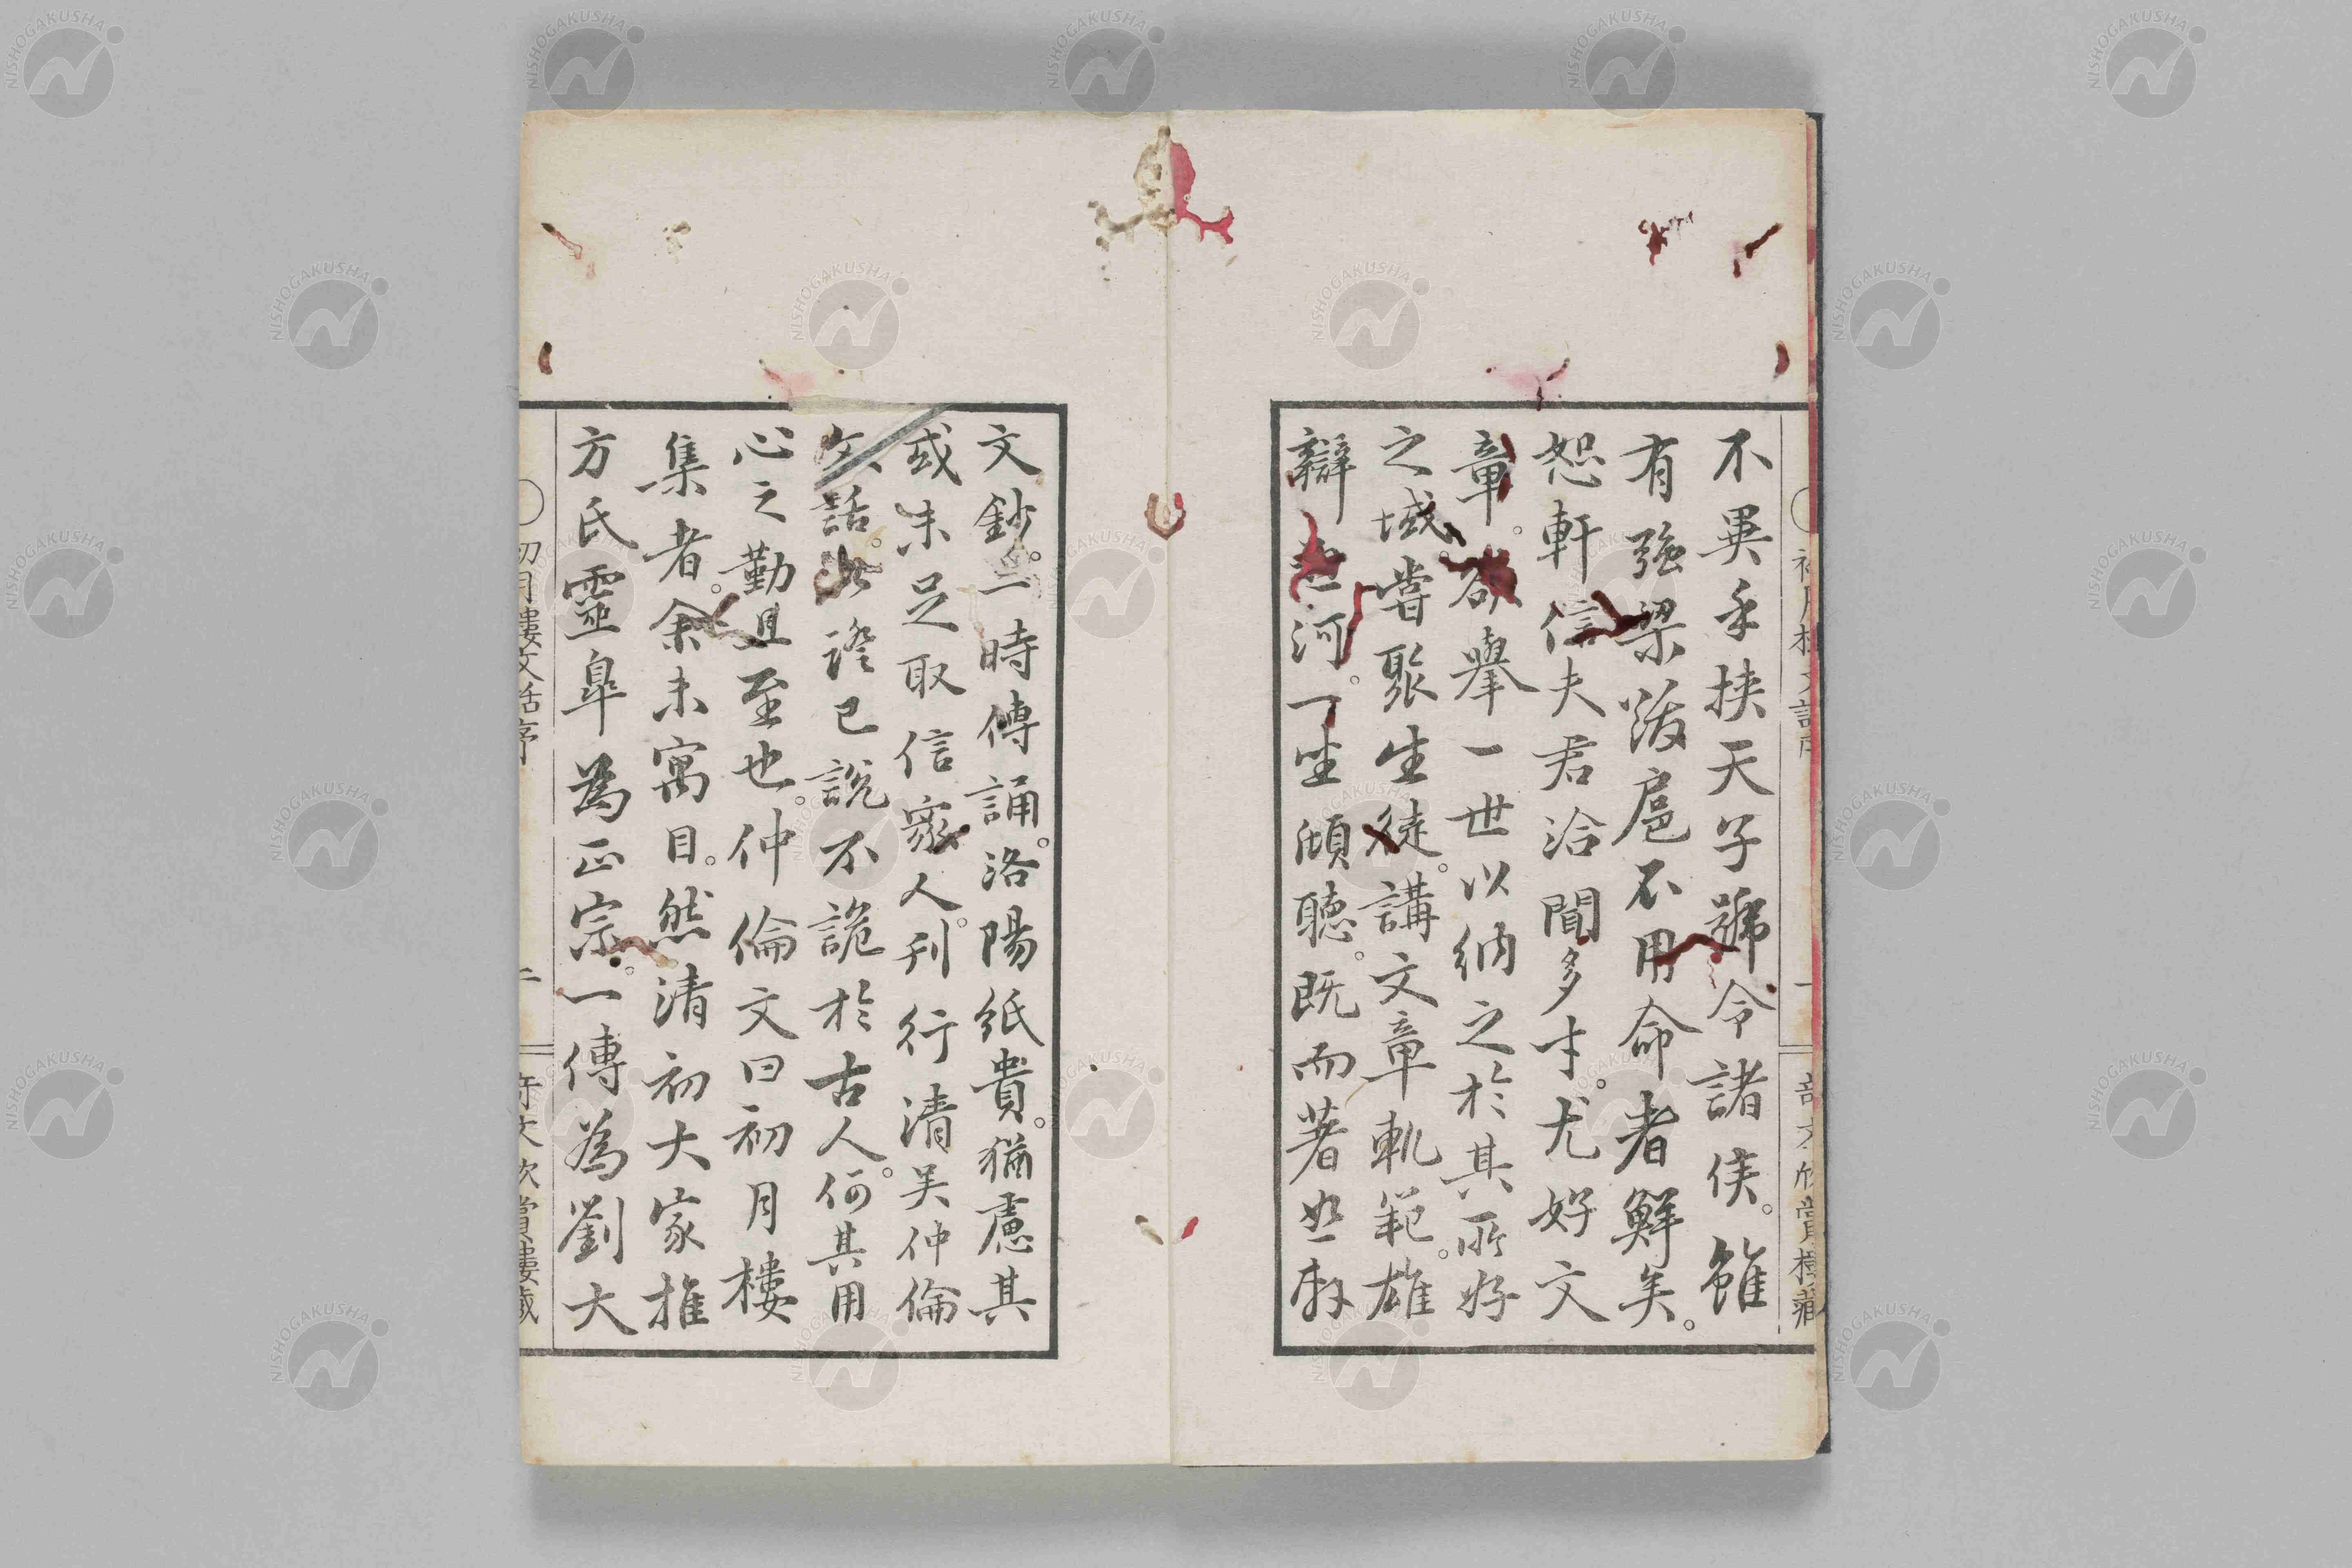 不異乎挾天子號令諸侯。雖
有强梁跋扈不用命者鮮矣。
恕軒信夫君洽聞多才。尤好文
章。欲擧一世以納之於其所好
之域。嘗聚生徒。講文章軌範。雄
辯懸河。一坐傾聽。既而著恕軒
文鈔。一時傳誦。洛陽紙貴。猶慮其
或未足取信衆人。刊行清吳仲倫
文話。以證己說不詭於古人。何其用
心之勤且至也。仲倫文曰初月樓
集者。余未寓目。然清初大家推
方氏靈皐為正宗。一傳為劉大
初月樓文話序
一
奇文欣賞樓藏
初月樓文話序
二
奇文欣賞樓藏
NISHOGAKUSHA